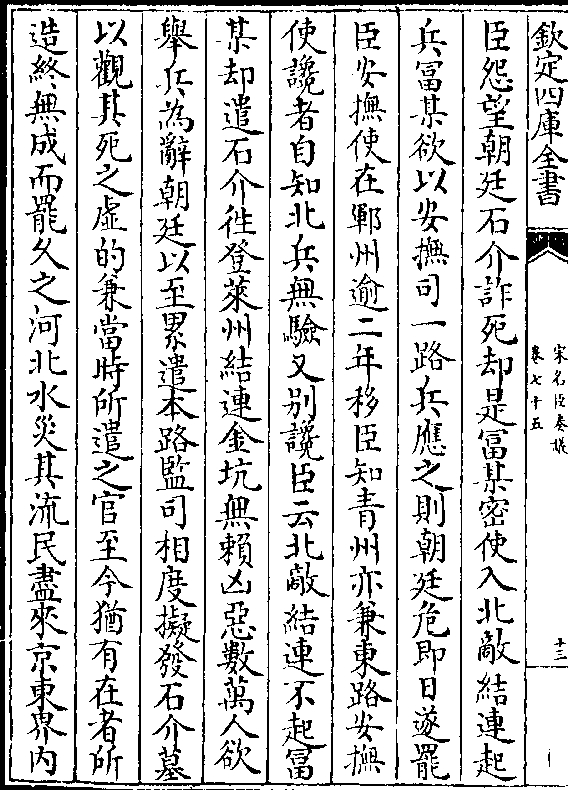 欽定四庫全書
宋名臣奏議
卷七十五
十三
臣怨望朝廷石介詐死却是富某密使入北敵結連起
兵富某欲以安撫司一路兵應之則朝廷危即日遂罷
臣安撫使在鄆州逾二年移臣知青州亦兼東路安撫
使讒者自知北兵無驗又别讒臣云北敵結連不起富
某却遣石介徃登萊州結連金坑無賴凶惡數萬人欲
舉兵為辭朝廷以至累遣本路監司相度擬發石介墓
以觀其死之虚的兼當時所遣之官至今猶有在者所
造終無成而罷久之河北水災其流民盡來京東界内